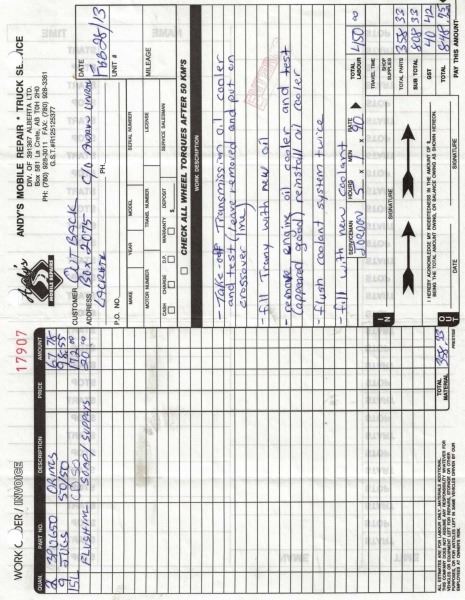 WORK ORDER / INVOICE
17907
QUAN. PART NO. DESCRIPTION PRICE AMOUNT
2 ORINGS 67.78
9 JUGS 50/50 98.55
15L CD50 172.00
FLUSHING SOAP/SUPPLYS 20.00
TOTAL MATERIAL 358.33
ALL ESTIMATES ARE FOR LABOUR ONLY, MATERIALS ADDITIONAL.
Andy's
MOBILE REPAIR
ANDY'S MOBILE REPAIR * TRUCK SERVICE
DIV. OF 391367 ALBERTA LTD.
Box 581 La Crete, AB T0H 2H0
PH: (780) 928-3011 FAX: (780) 928-3361
G.S.T.
CUSTOMER OUTBACK
DATE Feb 28/13
ADDRESS Box 2075 C/O
LACRETE PH.
UNIT #
P.O. NO.
MAKE YEAR MODEL SERIAL NUMBER MILEAGE
MOTOR NUMBER TRANS. NUMBER LICENSE
CASH CHARGE D.P. WARRANTY DEPOSIT SERVICE SALESMAN
CHECK ALL WHEEL TORQUES AFTER 50 KM'S
WORK DESCRIPTION
- Take off Transmission oil cooler
and test (leave removed and put on
crossover line)
- fill Tranny with new oil
- remove engine oil cooler and test
(appeared good) reinstall oil cooler
- flush coolant system twice
- fill with new coolant
SERVICEMAN HOURS MIN RATE
X X 90
TOTAL LABOUR 450 00
TRAVEL TIME
SHOP SUPPLIES
TOTAL PARTS 358 33
SUB TOTAL 808 33
GST 40 42
TOTAL 848 75
PAY THIS AMOUNT
IN
SIGNATURE
I HEREBY ACKNOWLEDGE MY INDEBTEDNESS IN THE AMOUNT OF $
BEING THE TOTAL AMOUNT OWING, OR BALANCE OWING AS SHOWN VERSION.
OUT
DATE SIGNATURE